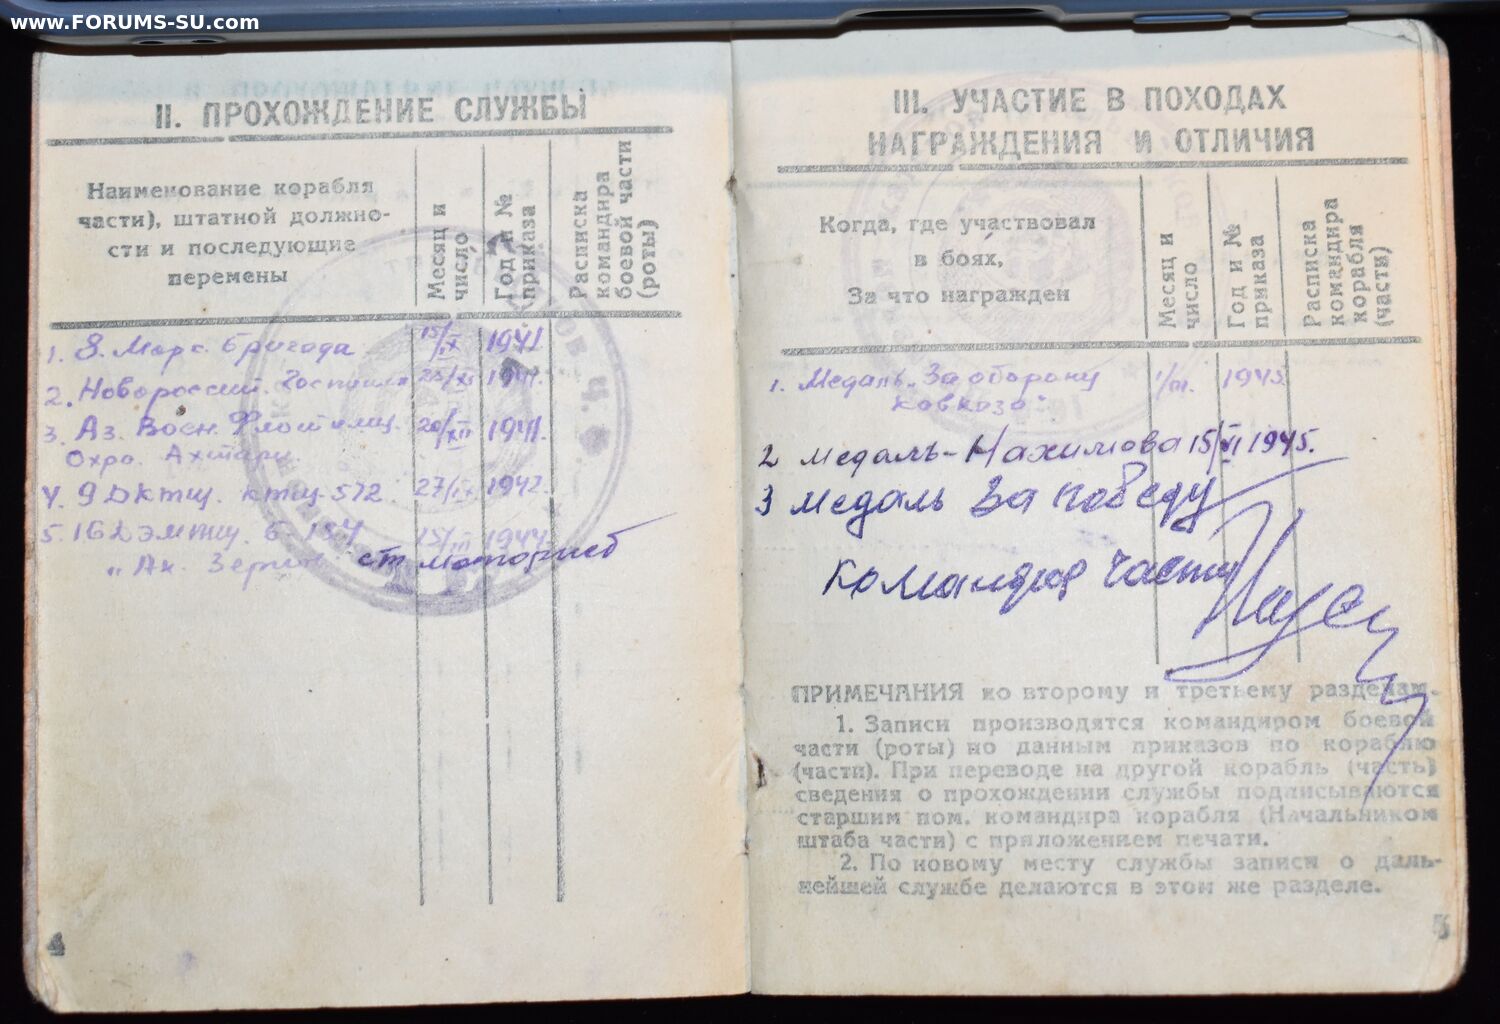 www.FORUMS-SU.com
II. ПРОХОЖДЕНИЕ СЛУЖБЫ
Наименование корабля
части), штатной должно-
сти и последующие
перемены
Месяц и
число
Год и №
приказа
Расписка
командира
боевой части
(роты)
1. 8. Морс. бригада 15/IX 1941
2. Новороссий. Госпиталь /XI 1941.
3. Аз. Воен. Флотилищ. 20/XII 1941.
Ахтари.
4. 9 Дктщ. ктщ-572. 27/ 1942.
5. 16 Дэмтщ. 15/ 1944.
"Ах. ст. моторист
4
III. УЧАСТИЕ В ПОХОДАХ
НАГРАЖДЕНИЯ И ОТЛИЧИЯ
Когда, где участвовал
в боях,
За что награжден
Месяц и
число
Год и №
приказа
Расписка
командира
корабля
(части)
1. Медаль-За оборону 1/III. 1945
Кавказа"
2 медаль-Нахимова 15/VI 1945.
3 медаль За победу
командир части
ПРИМЕЧАНИЯ ко второму и третьему разделам.
1. Записи производятся командиром боевой
части (роты) по данным приказов по кораблю
(части). При переводе на другой корабль (часть)
сведения о прохождении службы подписываются
старшим пом. командира корабля (Начальником
штаба части) с приложением печати.
2. По новому месту службы записи о даль-
нейшей службе делаются в этом же разделе.
5